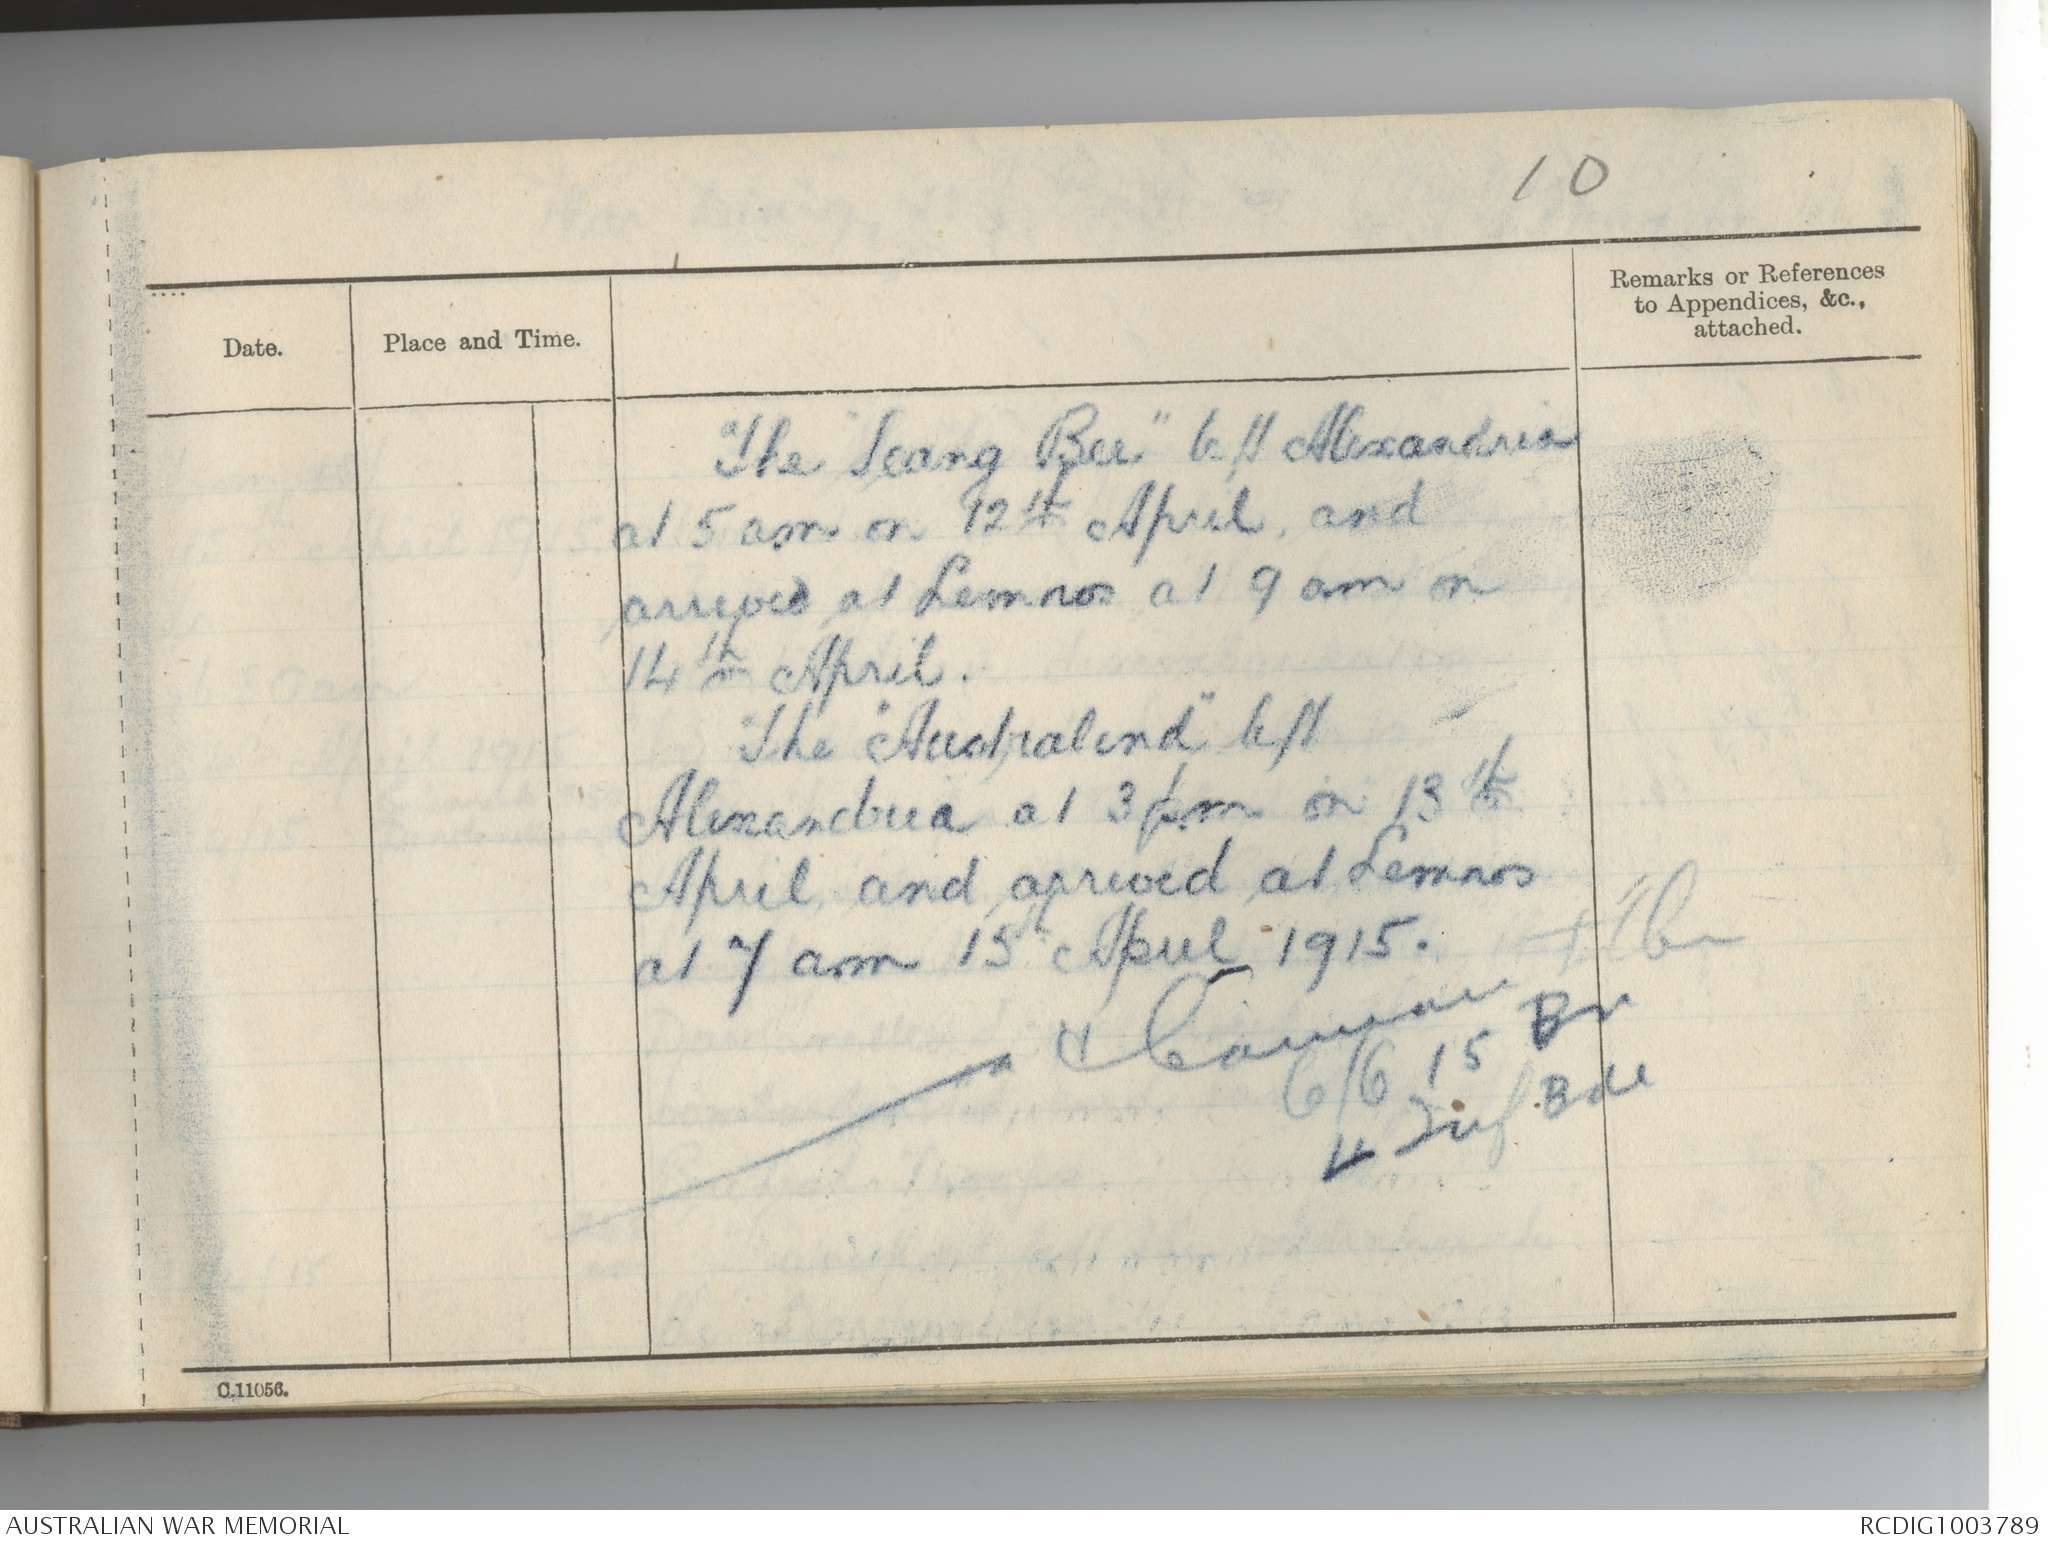 10
Date.
Place and Time.
Remarks or References
to Appendices, &c.,
attached.
The "Seang Bee" left Alexandria
at 5 am on 12th April, and
arrived at Lemnos at 9 am on
14th April.
The "Australind" left
Alexandria at 3 pm on 13th
April, and arrived at Lemnos
at 7 am 15th April 1915.
6/6 15
4 Inf Bde
C.11056.
AUSTRALIAN WAR MEMORIAL
RCDIG1003789